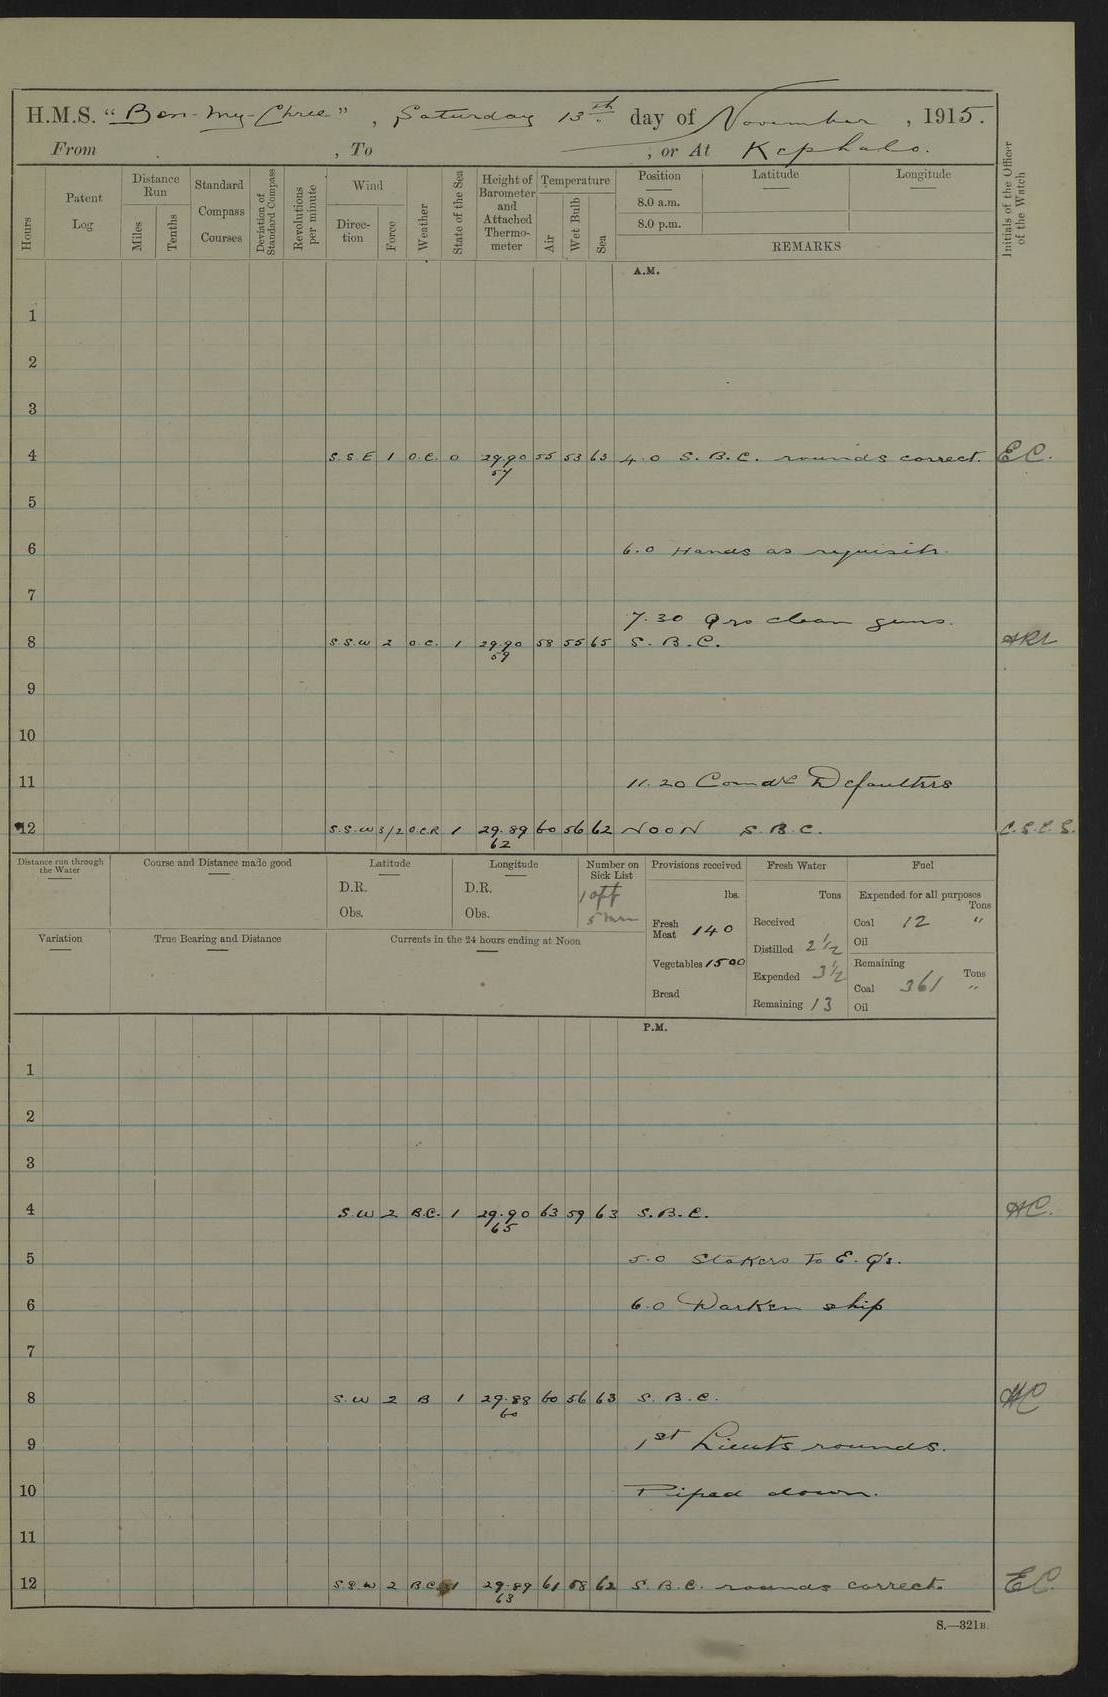 H.M.S. “Ben-my-Chree”, Saturday 13th day of November, 1915.
From , To , or At Kephalo.
Hours
Patent Log
Distance Run
Miles
Tenths
Standard Compass Courses
Deviation of Standard Compass
Revolutions per minute
Wind
Direction
Force
Weather
State of the Sea
Height of Barometer and Attached Thermometer
Temperature
Air
Wet Bulb
Sea
Position
8.0 a.m.
8.0 p.m.
Latitude
Longitude
REMARKS
Initials of the Officer of the Watch
A.M.
1
2
3
4 S.S.E 1 O.C. 0 29.90 55 53 63 4.0 S.B.C. rounds correct. EC.
57
5
6 6.0 Hands as requisite.
7
7.30 Qrs clean guns.
8 S.S.W 2 O.C. 1 29.90 58 55 65 S.B.C.
59
9
10
11 11.20 Comdr Defaulters
12 S.S.W 3/2 O.C.R 1 29.89 60 56 62 NOON S.B.C. C.S.C.S.
62
Distance run through the Water
Course and Distance made good
Latitude
D.R.
Obs.
Longitude
D.R.
Obs.
Number on Sick List
1 off
5 men
Provisions received
lbs.
Fresh Meat 140
Vegetables 1500
Bread
Fresh Water
Tons
Received
Distilled 2 1/2
Expended 3 1/2
Remaining 13
Fuel
Expended for all purposes
Tons
Coal 12 „
Oil
Remaining
Tons
Coal 361 „
Oil
Variation
True Bearing and Distance
Currents in the 24 hours ending at Noon
P.M.
1
2
3
4 S.W 2 B.C. 1 29.90 63 59 63 S.B.C. HC.
65
5 5.0 Stokers to E.Q's.
6 6.0 Darken ship
7
8 S.W 2 B 1 29.88 60 56 63 S.B.C. HC
60
9 1st Lieuts rounds.
10 Piped down.
11
12 S.S.W 2 B.C. 1 29.89 61 58 62 S.B.C. rounds correct. EC.
63
S.—321B.